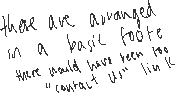 there are arranged
in a basic footer
there would have been too
"contact us" link